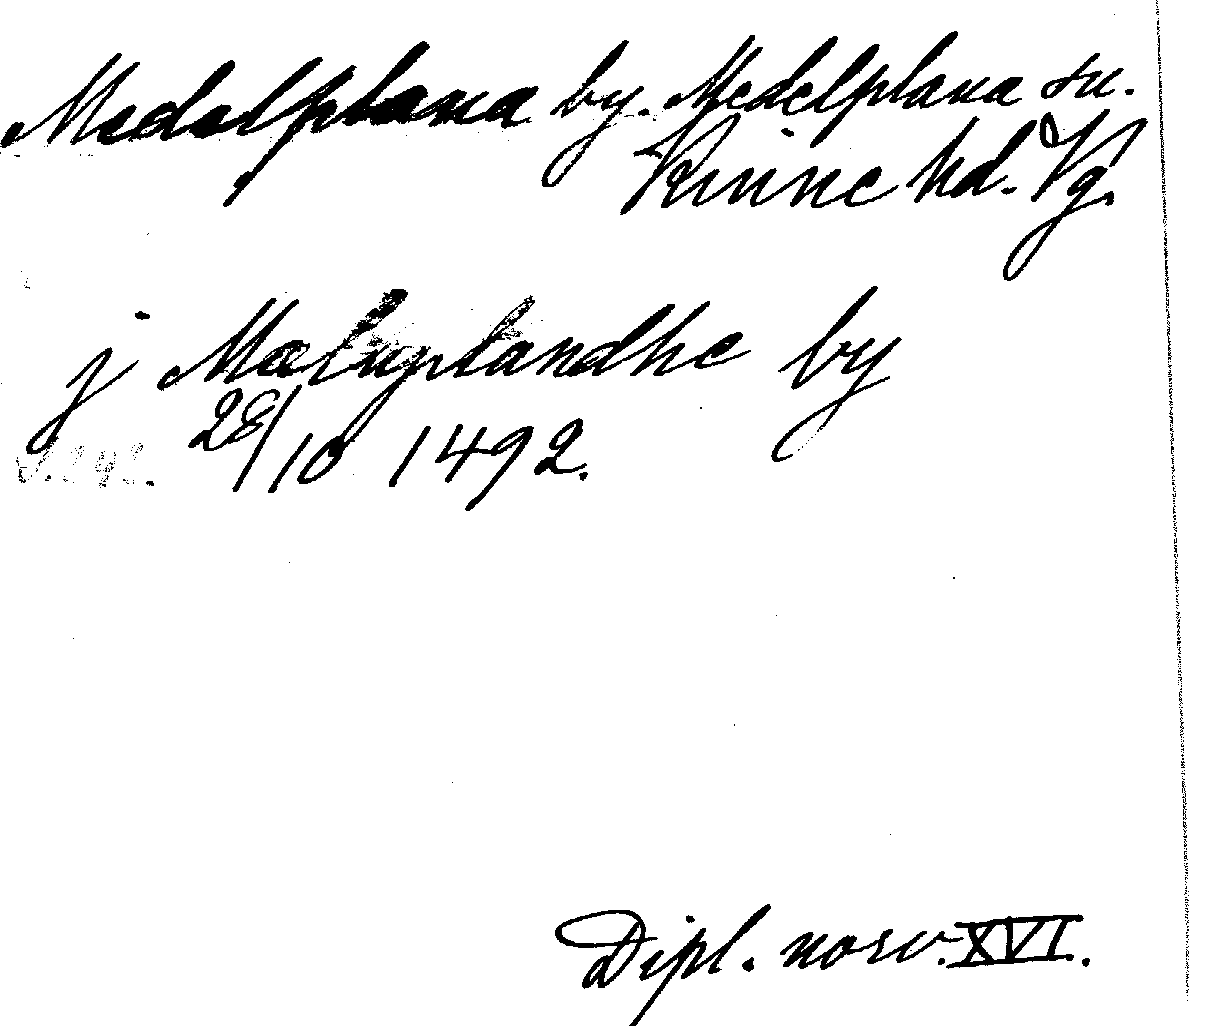 Medelplana by. Medelplana sn.
Kinne hd. Vg.
j Mæluplandhe by
S. 292. 28/10 1492.
Dipl. norv. XVI.